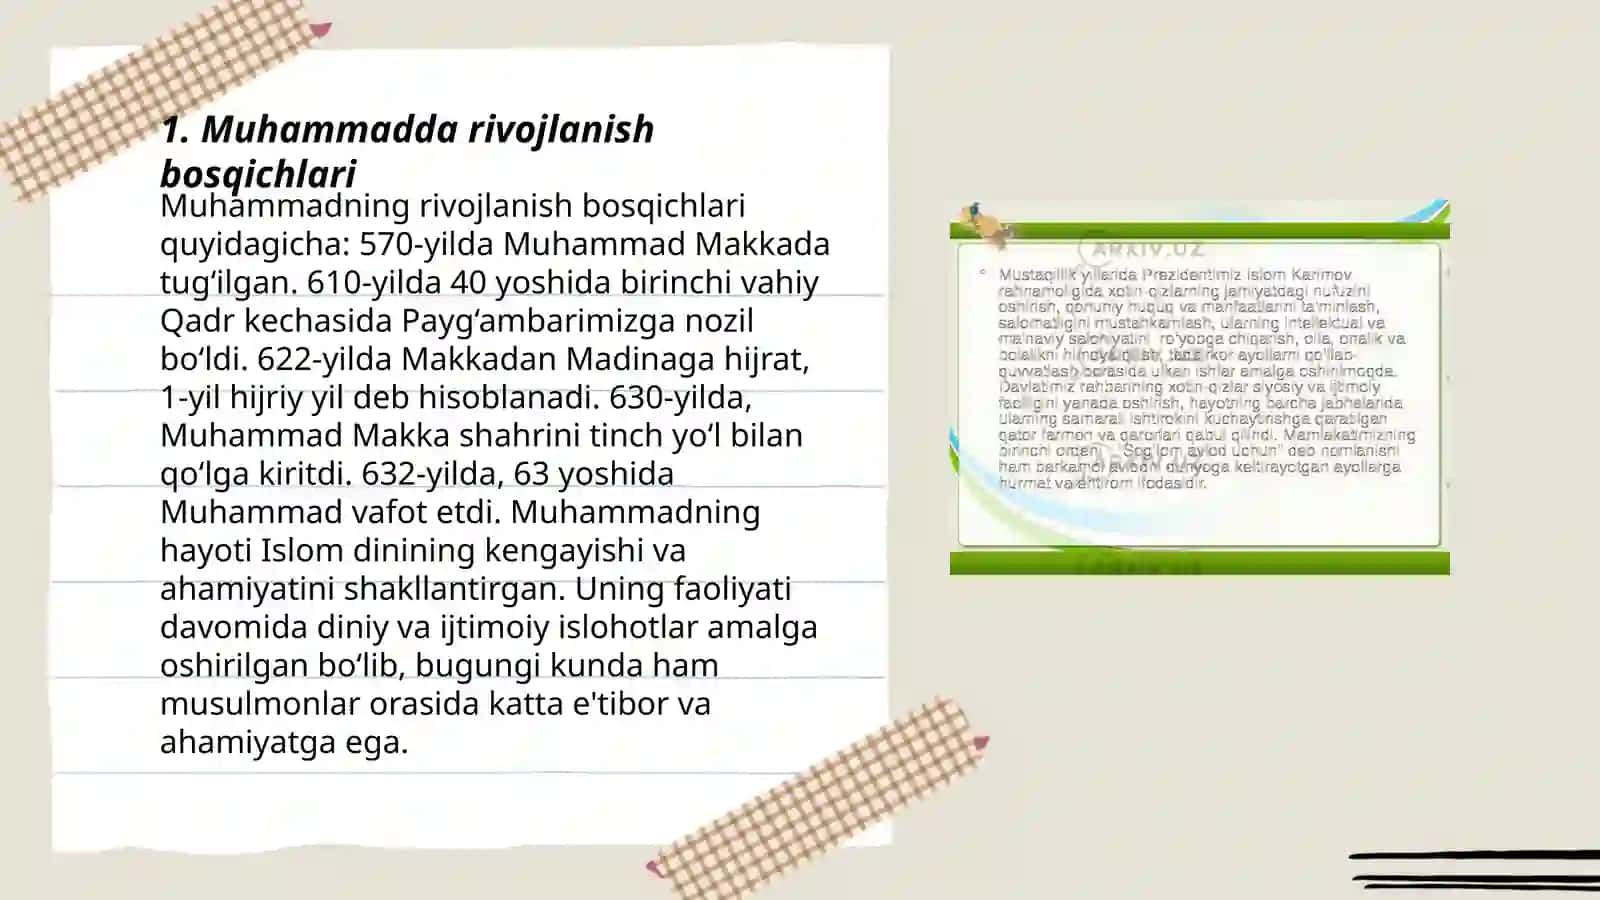 1. Muhammadda rivojlanish
bosqichlari
Muhammadning rivojlanish bosqichlari
quyidagicha: 570-yilda Muhammad Makkada
tug‘ilgan. 610-yilda 40 yoshida birinchi vahiy
Qadr kechasida Payg‘ambarimizga nozil
bo‘ldi. 622-yilda Makkadan Madinaga hijrat,
1-yil hijriy yil deb hisoblanadi. 630-yilda,
Muhammad Makka shahrini tinch yo‘l bilan
qo‘lga kiritdi. 632-yilda, 63 yoshida
Muhammad vafot etdi. Muhammadning
hayoti Islom dinining kengayishi va
ahamiyatini shakllantirgan. Uning faoliyati
davomida diniy va ijtimoiy islohotlar amalga
oshirilgan bo‘lib, bugungi kunda ham
musulmonlar orasida katta e'tibor va
ahamiyatga ega.
ARXIV.UZ
Mustaqillik yillarida Prezidentimiz Islom Karimov
rahnamoligida xotin-qizlarning jamiyatdagi nufuzini
oshirish, qonuniy huquq va manfaatlarini ta'minlash,
salomatligini mustahkamlash, ularning intellektual va
ma'naviy salohiyatini ro'yobga chiqarish, oila, onalik va
bolalikni himoya qilish, tadbirkor ayollarni qo'llab-
quvvatlash borasida ulkan ishlar amalga oshirilmoqda.
Davlatimiz rahbarining xotin-qizlar siyosiy va ijtimoiy
faolligini yanada oshirish, hayotning barcha jabhalarida
ularning samarali ishtirokini kuchaytirishga qaratilgan
qator farmon va qarorlari qabul qilindi. Mamlakatimizning
birinchi ordeni "Sog'lom avlod uchun" deb nomlanishi
ham barkamol avlodni dunyoga keltirayotgan ayollarga
hurmat va ehtirom ifodasidir.